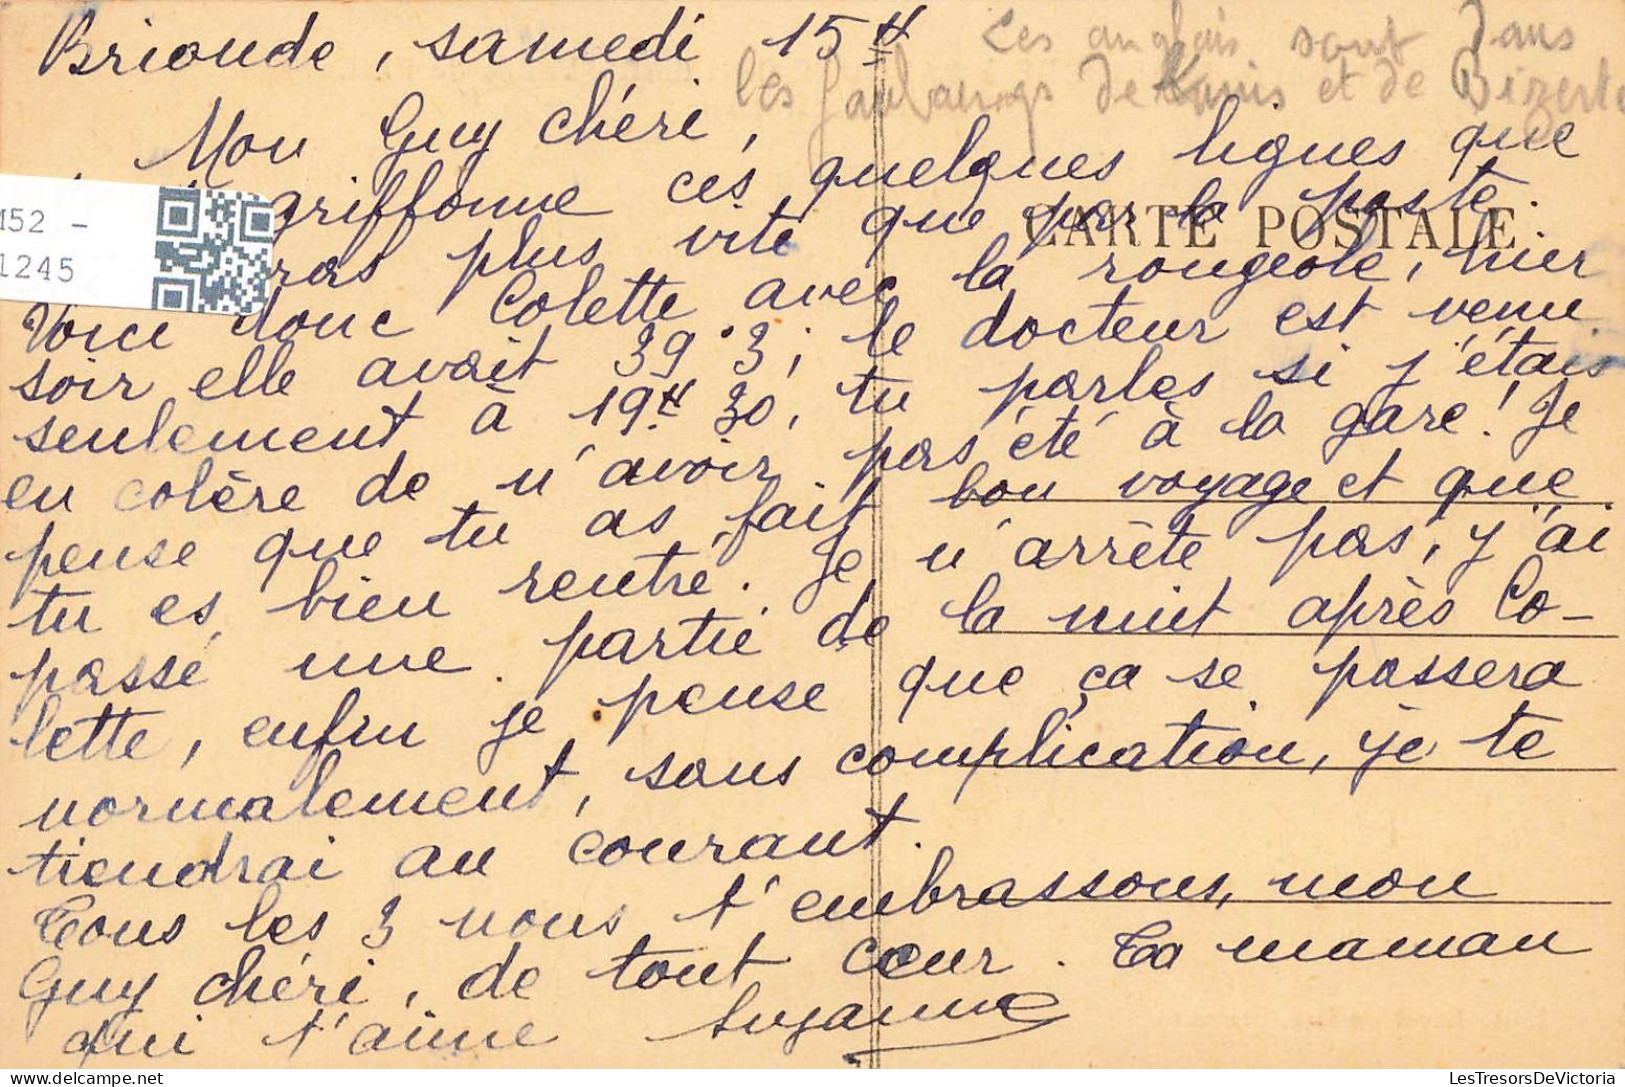 Brioude, samedi 15 H
Les anglais sont dans
les faubourgs de Tunis et de Bizerte
Mon Guy chéri,
griffonne ces quelques lignes que
ras plus vite que par la poste.
CARTE POSTALE
Voici donc Colette avec la rougeole, hier
soir elle avait 39.3, le docteur est venu
seulement à 19H 30, tu parles si j'étais
en colère de n'avoir pas été à la gare! Je
pense que tu as fait bon voyage et que
tu es bien rentré. Je n'arrête pas, j'ai
passé une partie de la nuit après Co-
lette, enfin je pense que ça se passera
normalement, sans complication, je te
tiendrai au courant.
Tous les 3 nous t'embrassons, mon
Guy chéri, de tout cœur. Ta maman
qui t'aime Suzanne
M52 -
1245
LesTresorsDeVictoria